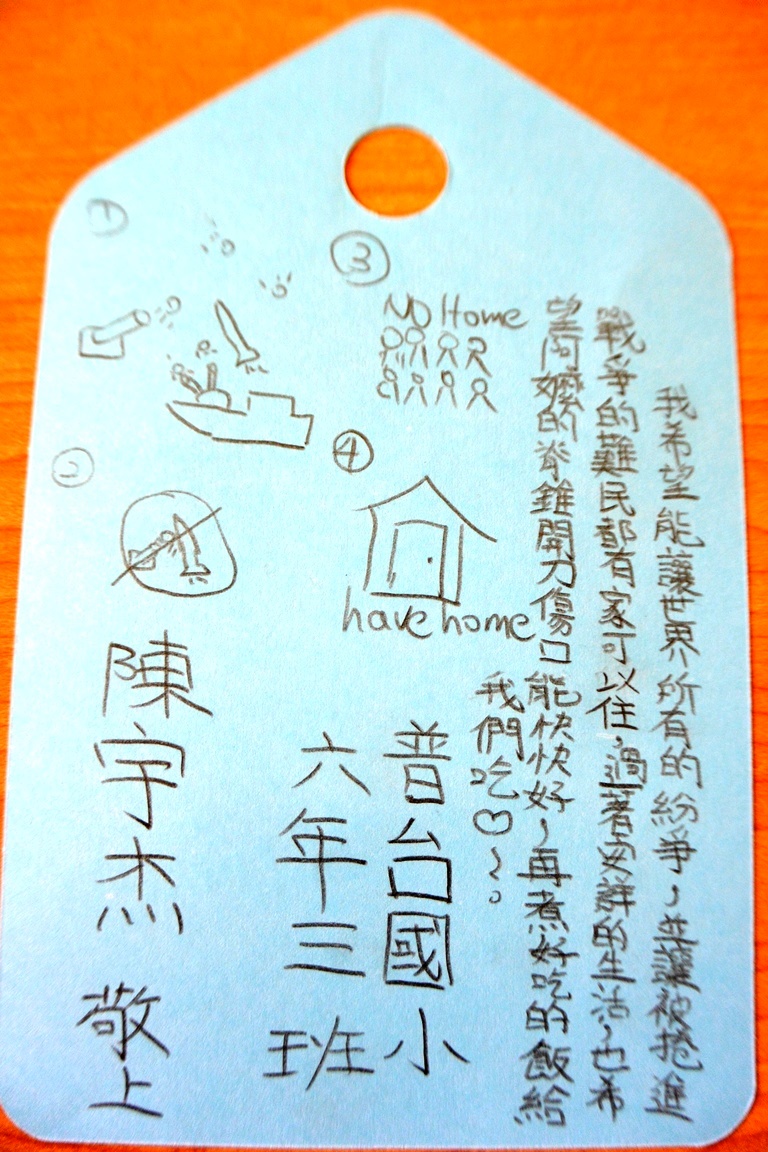 我希望能讓世界所有的紛爭，並讓被捲進
戰爭的難民都有家可以住，過著安詳的生活，也希
望阿嬤的脊錐開刀傷口能快快好，再煮好吃的飯給
我們吃♡~。
①
②
③
No Home
④
have home
普台國小
六年三班
陳宇杰 敬上